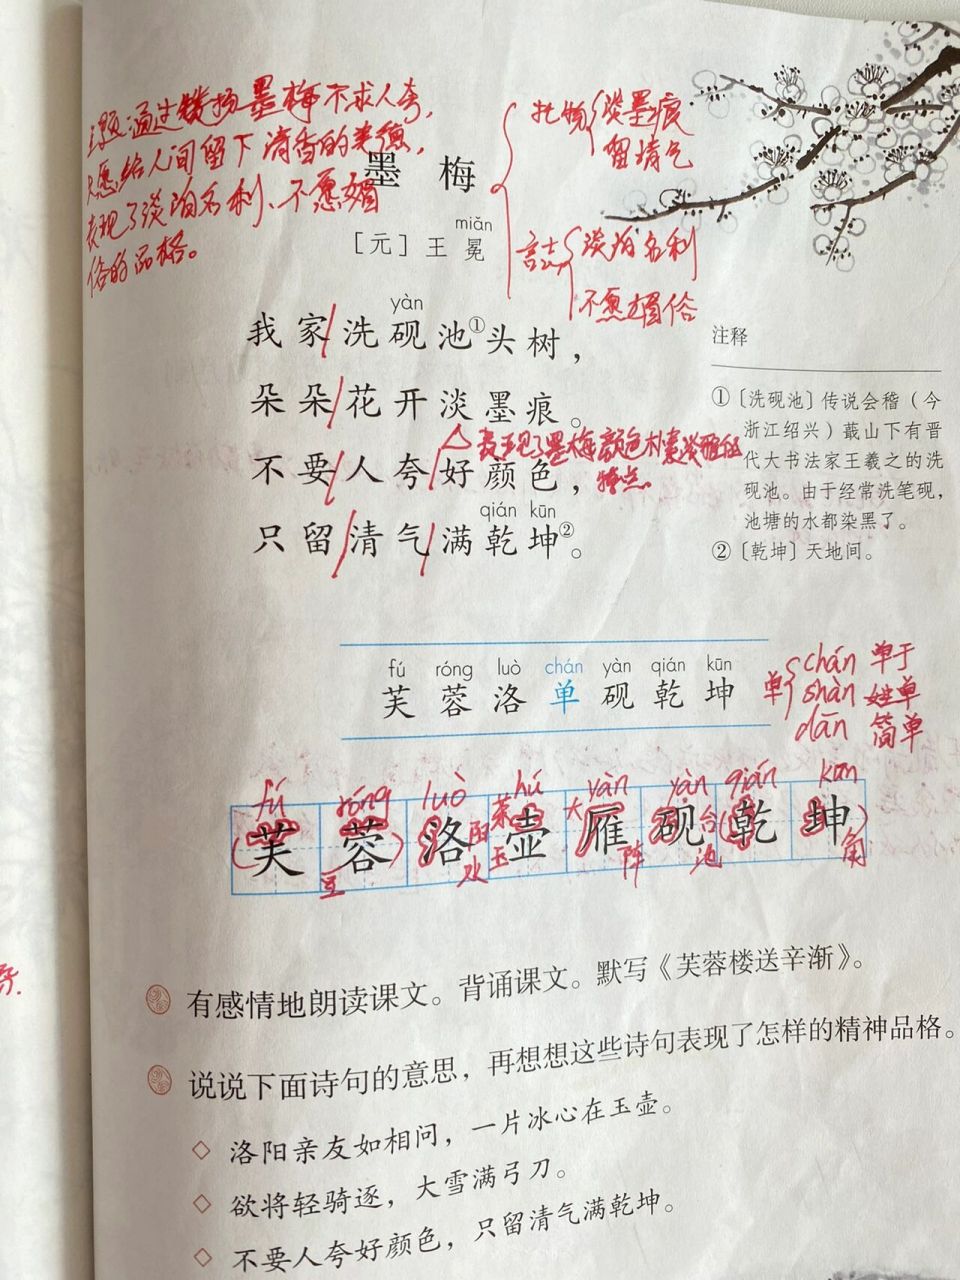 主题:通过赞扬墨梅不求人夸,
只愿给人间留下清香的美德,
表现了淡泊名利、不愿媚
俗的品格。
托物 淡墨痕
留清气
言志 淡泊名利
不愿媚俗
墨 梅
miǎn
[元] 王 冕
yàn
我家洗砚池①头树,
朵朵花开淡墨痕。
表现了墨梅颜色朴素淡雅的
特点。
不要人夸好颜色,
qián kūn
只留清气满乾坤②。
注释
①〔洗砚池〕传说会稽(今
浙江绍兴)蕺山下有晋
代大书法家王羲之的洗
砚池。由于经常洗笔砚,
池塘的水都染黑了。
②〔乾坤〕天地间。
fú róng luò chán yàn qián kūn
芙 蓉 洛 单 砚 乾 坤
单 chán 单于
shàn 姓单
dān 简单
fú róng luò hú yàn yàn qián kūn
(芙 蓉) 洛 壶 雁 砚 (乾 坤)
茶 大 阳 台
玉 水 玉 阵 池 角
有感情地朗读课文。背诵课文。默写《芙蓉楼送辛渐》。
说说下面诗句的意思,再想想这些诗句表现了怎样的精神品格。
◇ 洛阳亲友如相问,一片冰心在玉壶。
◇ 欲将轻骑逐,大雪满弓刀。
◇ 不要人夸好颜色,只留清气满乾坤。